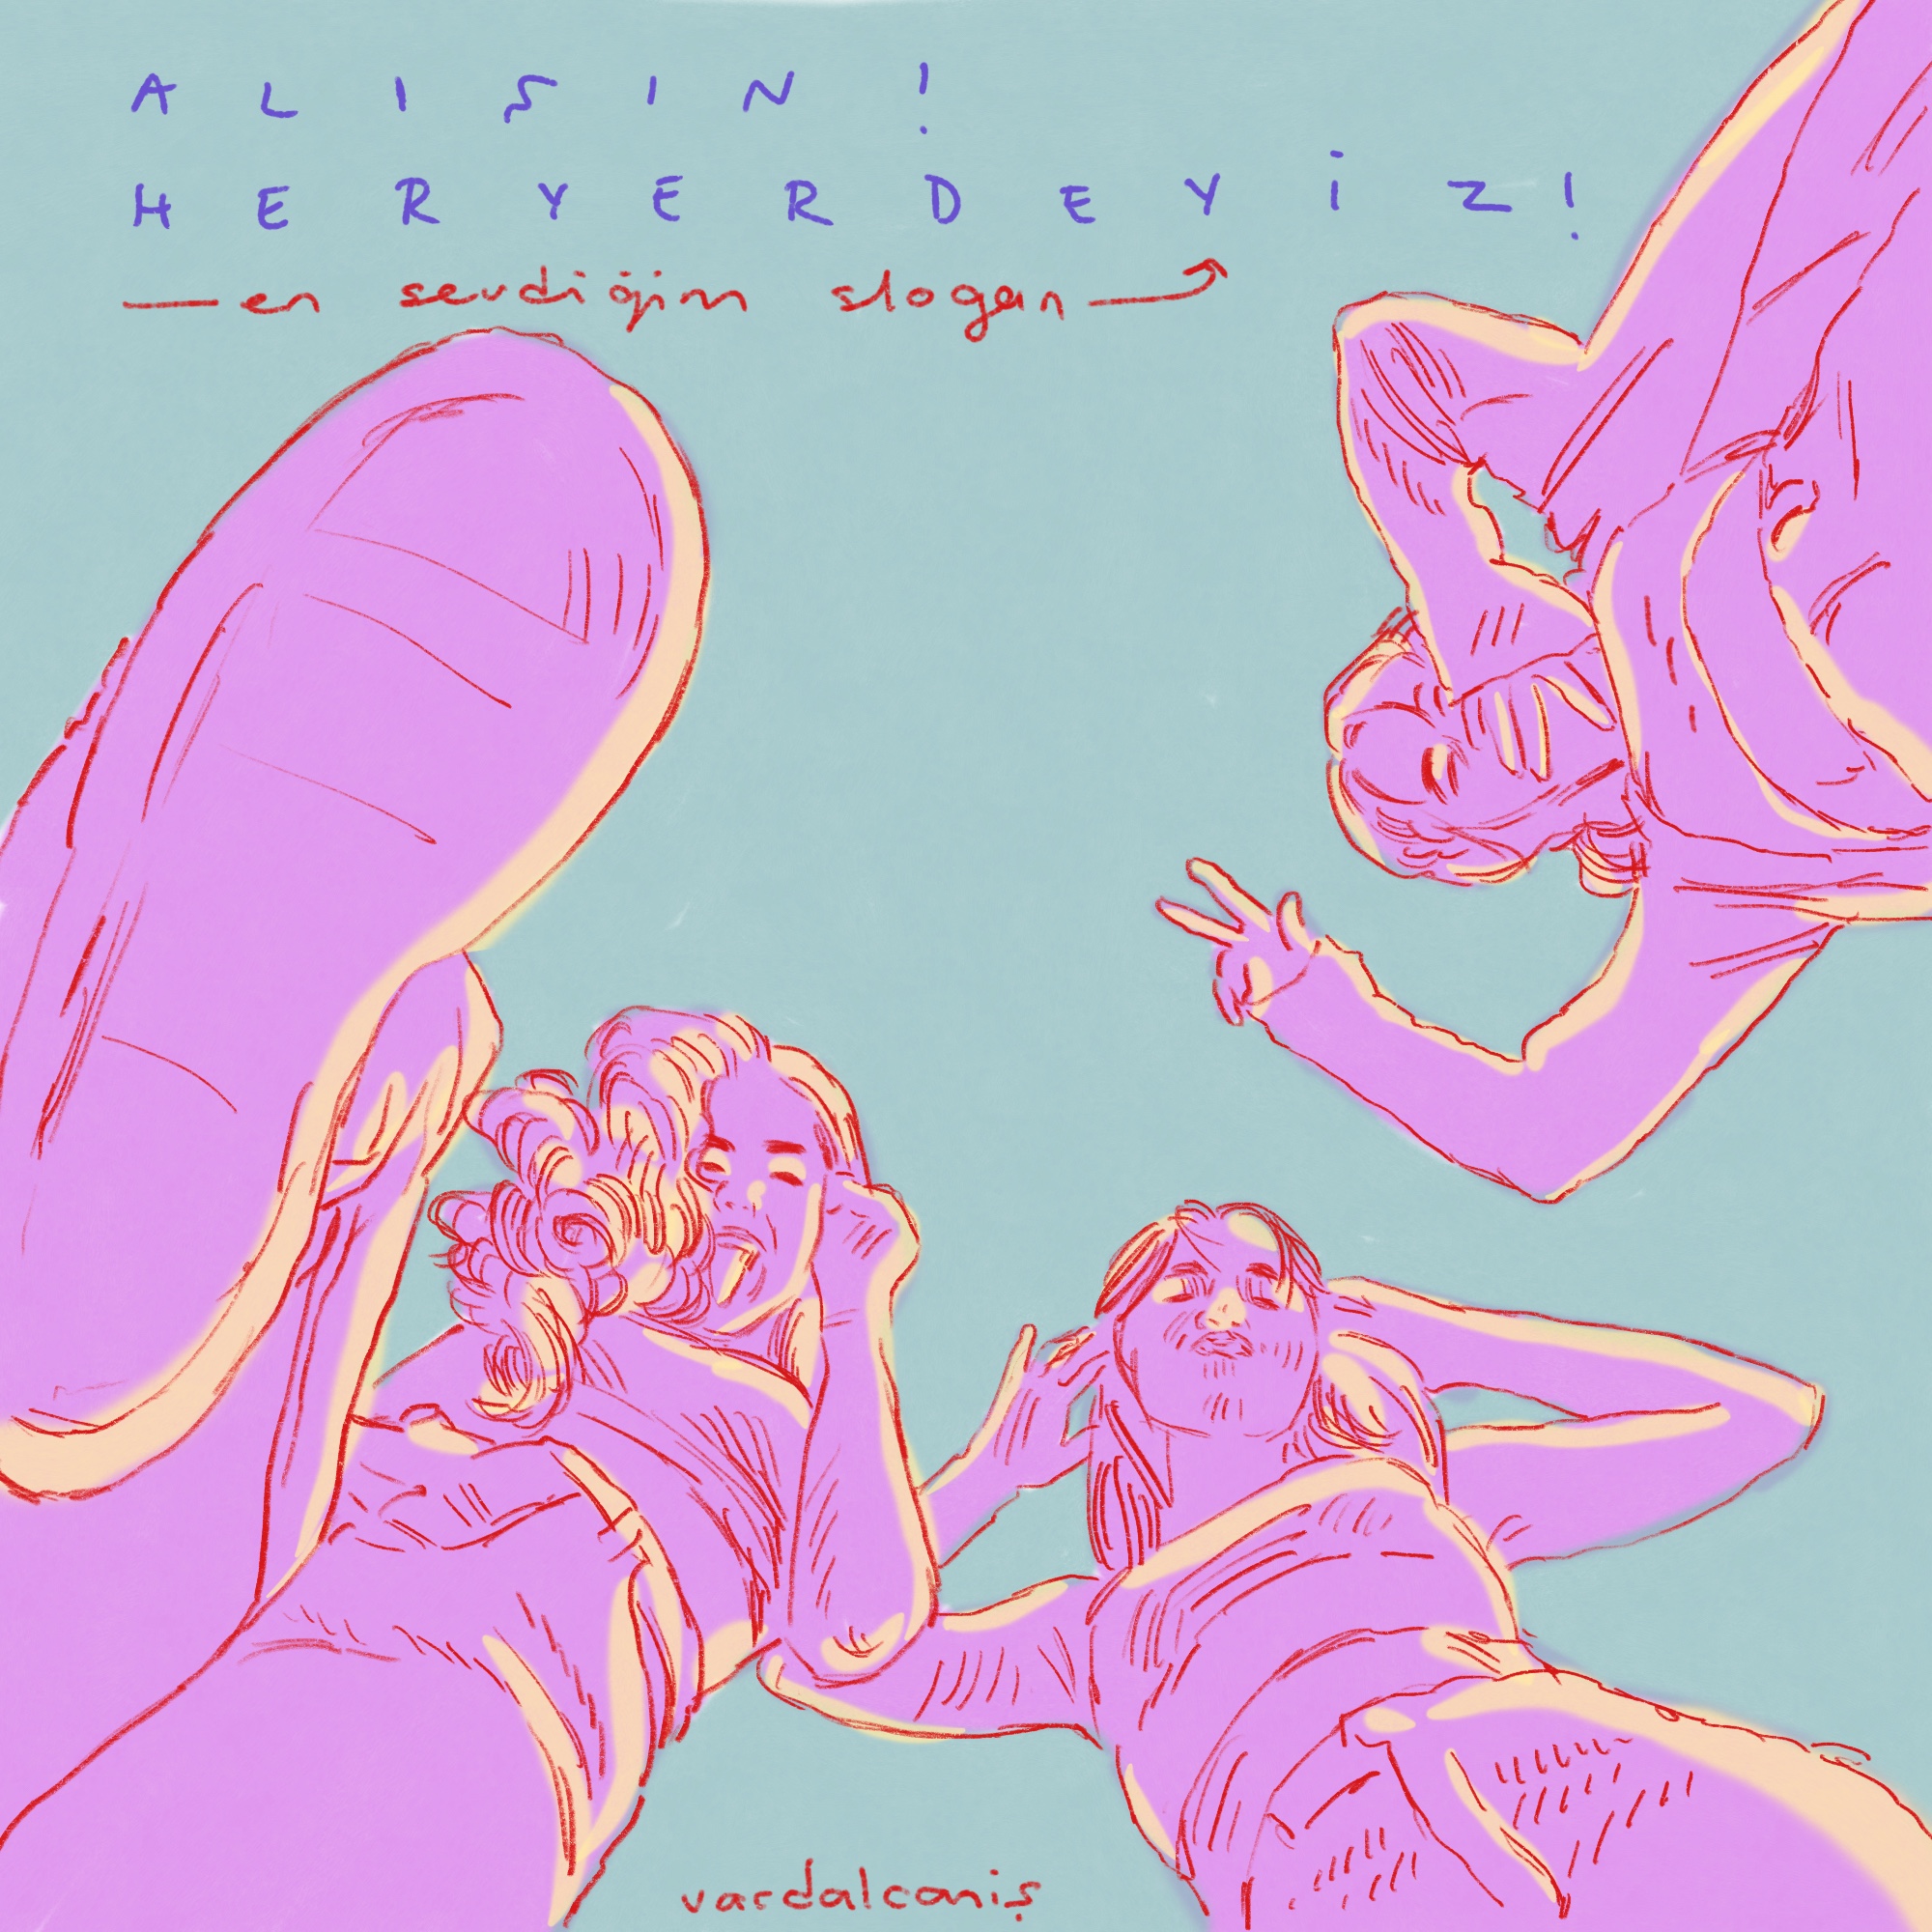 ALIŞIN!
HERYERDEYİZ!
— en sevdiğim slogan
vardalcaniş